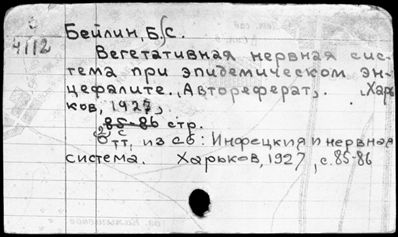 4112
Бейлин, Б. С.
Вегетативная нервная сис-
тема при эпидемическом эн-
цефалите. Автореферат. Харь-
ков, 1927,
85-86 стр.
Отт, из сб: Инфекция и нервная
система. Харьков, 1927, с. 85-86